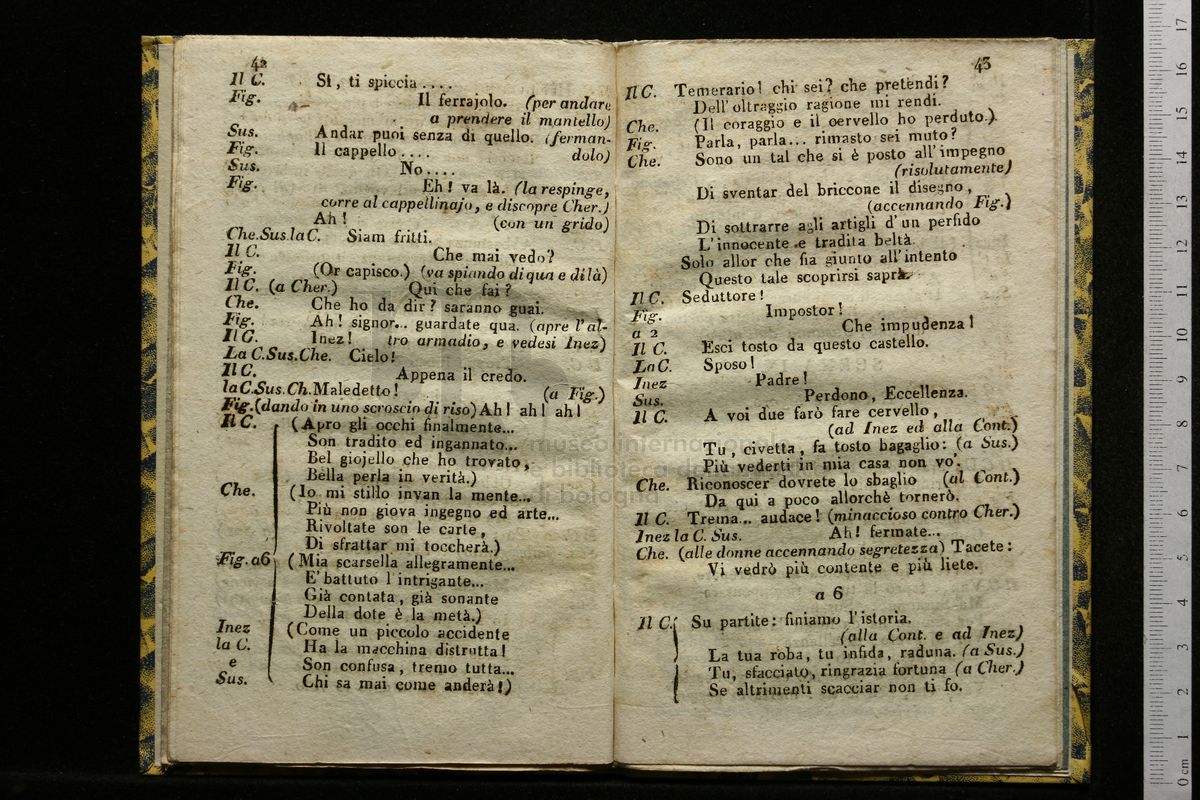 42
Il C. Sì, ti spiccia....
Fig. Il ferrajolo. (per andare
a prendere il mantello)
Sus. Andar puoi senza di quello. (ferman-
Fig. Il cappello.... dolo)
Sus. No....
Fig. Eh! va là. (la respinge,
corre al cappellinajo, e discopre Cher.)
Ah! (con un grido)
Che.Sus.laC. Siam fritti.
Il C. Che mai vedo?
Fig. (Or capisco.) (va spiando di qua e di là)
Il C. (a Cher.) Qui che fai?
Che. Che ho da dir? saranno guai.
Fig. Ah! signor... guardate qua. (apre l'al-
Il C. Inez! tro armadio, e vedesi Inez)
La C.Sus.Che. Cielo!
Il C. Appena il credo.
laC.Sus.Ch. Maledetto! (a Fig.)
Fig. (dando in uno scroscio di riso) Ah! ah! ah!
Il C. (Apro gli occhi finalmente...
Son tradito ed ingannato...
Bel giojello che ho trovato,
Bella perla in verità.)
Che. (Io mi stillo invan la mente...
Più non giova ingegno ed arte...
Rivoltate son le carte,
Di sfrattar mi toccherà.)
Fig. a6 (Mia scarsella allegramente...
E' battuto l'intrigante...
Già contata, già sonante
Della dote è la metà.)
Inez (Come un piccolo accidente
la C. Ha la macchina distrutta!
e Son confusa, tremo tutta...
Sus. Chi sa mai come anderà!)
43
Il C. Temerario! chi sei? che pretendi?
Dell'oltraggio ragione mi rendi.
Che. (Il coraggio e il cervello ho perduto.)
Fig. Parla, parla... rimasto sei muto?
Che. Sono un tal che si è posto all'impegno
(risolutamente)
Di sventar del briccone il disegno,
(accennando Fig.)
Di sottrarre agli artigli d'un perfido
L'innocente e tradita beltà.
Solo allor che fia giunto all'intento
Questo tale scoprirsi saprà.
Il C. Seduttore!
Fig. Impostor!
a 2 Che impudenza!
Il C. Esci tosto da questo castello.
La C. Sposo!
Inez Padre!
Sus. Perdono, Eccellenza.
Il C. A voi due farò fare cervello,
(ad Inez ed alla Cont.)
Tu, civetta, fa tosto bagaglio: (a Sus.)
Più vederti in mia casa non vo'.
Che. Riconoscer dovrete lo sbaglio (al Cont.)
Da qui a poco allorchè tornerò.
Il C. Trema... audace! (minaccioso contro Cher.)
Inez la C. Sus. Ah! fermate...
Che. (alle donne accennando segretezza) Tacete:
Vi vedrò più contente e più liete.
a 6
Il C. Su partite: finiamo l'istoria.
(alla Cont. e ad Inez)
La tua roba, tu infida, raduna. (a Sus.)
Tu, sfacciato, ringrazia fortuna (a Cher.)
Se altrimenti scacciar non ti fo.
museo internazionale
e biblioteca della musica
di bologna
0 cm 1 2 3 4 5 6 7 8 9 10 11 12 13 14 15 16 17